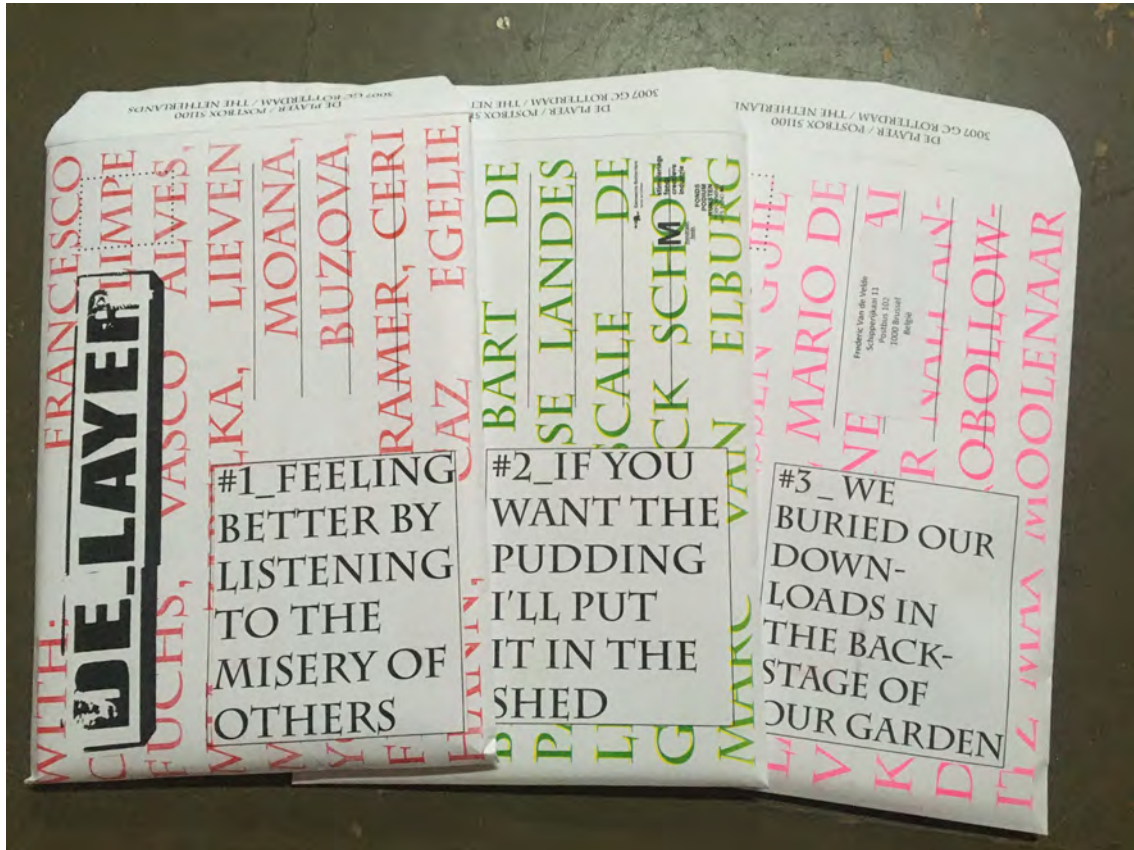 DE PLAYER / POSTBOX 51100
3007 GC ROTTERDAM / THE NETHERLANDS
WITH: FRANCESCO
LIMPE
FUCHS, VASCO ALVES,
LKA, LIEVEN
MOANA,
BUZOVA,
RAMER, CERI
CAZ EGELIE
DE_LAYER
#1_FEELING
BETTER BY
LISTENING
TO THE
MISERY OF
OTHERS
DE PLAYER / POSTBOX 51100
3007 GC ROTTERDAM / THE NET
BART DE
SE LANDES
SCALE DE
CK SCHOL,
MARC VAN ELBURG
FONDS
PODIUM
KUNSTEN
#2_IF YOU
WANT THE
PUDDING
I'LL PUT
IT IN THE
SHED
DE PLAYER / POSTBOX 51100
3007 GC ROTTERDAM / THE NETHERLANDS
MARIO DE
NE
AI
R
OBOLLOW-
MAX MOOLENAAR
Frederic Van de Velde
Schipperijkaai 11
Postbus 102
1000 Brussel
België
#3_ WE
BURIED OUR
DOWN-
LOADS IN
THE BACK-
STAGE OF
OUR GARDEN